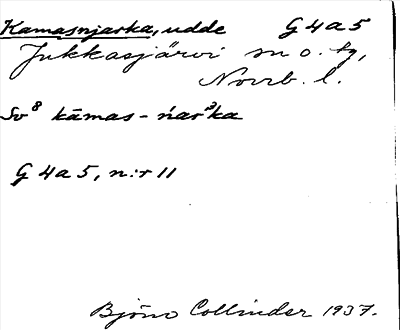 Kamasnjarka, udde G4a5
Jukkasjärvi sn o. tg,
Norrb. l.
Sv⁸ kāmas-ńar²ka
G4a5, n:r 11
Björn Collinder 1937.